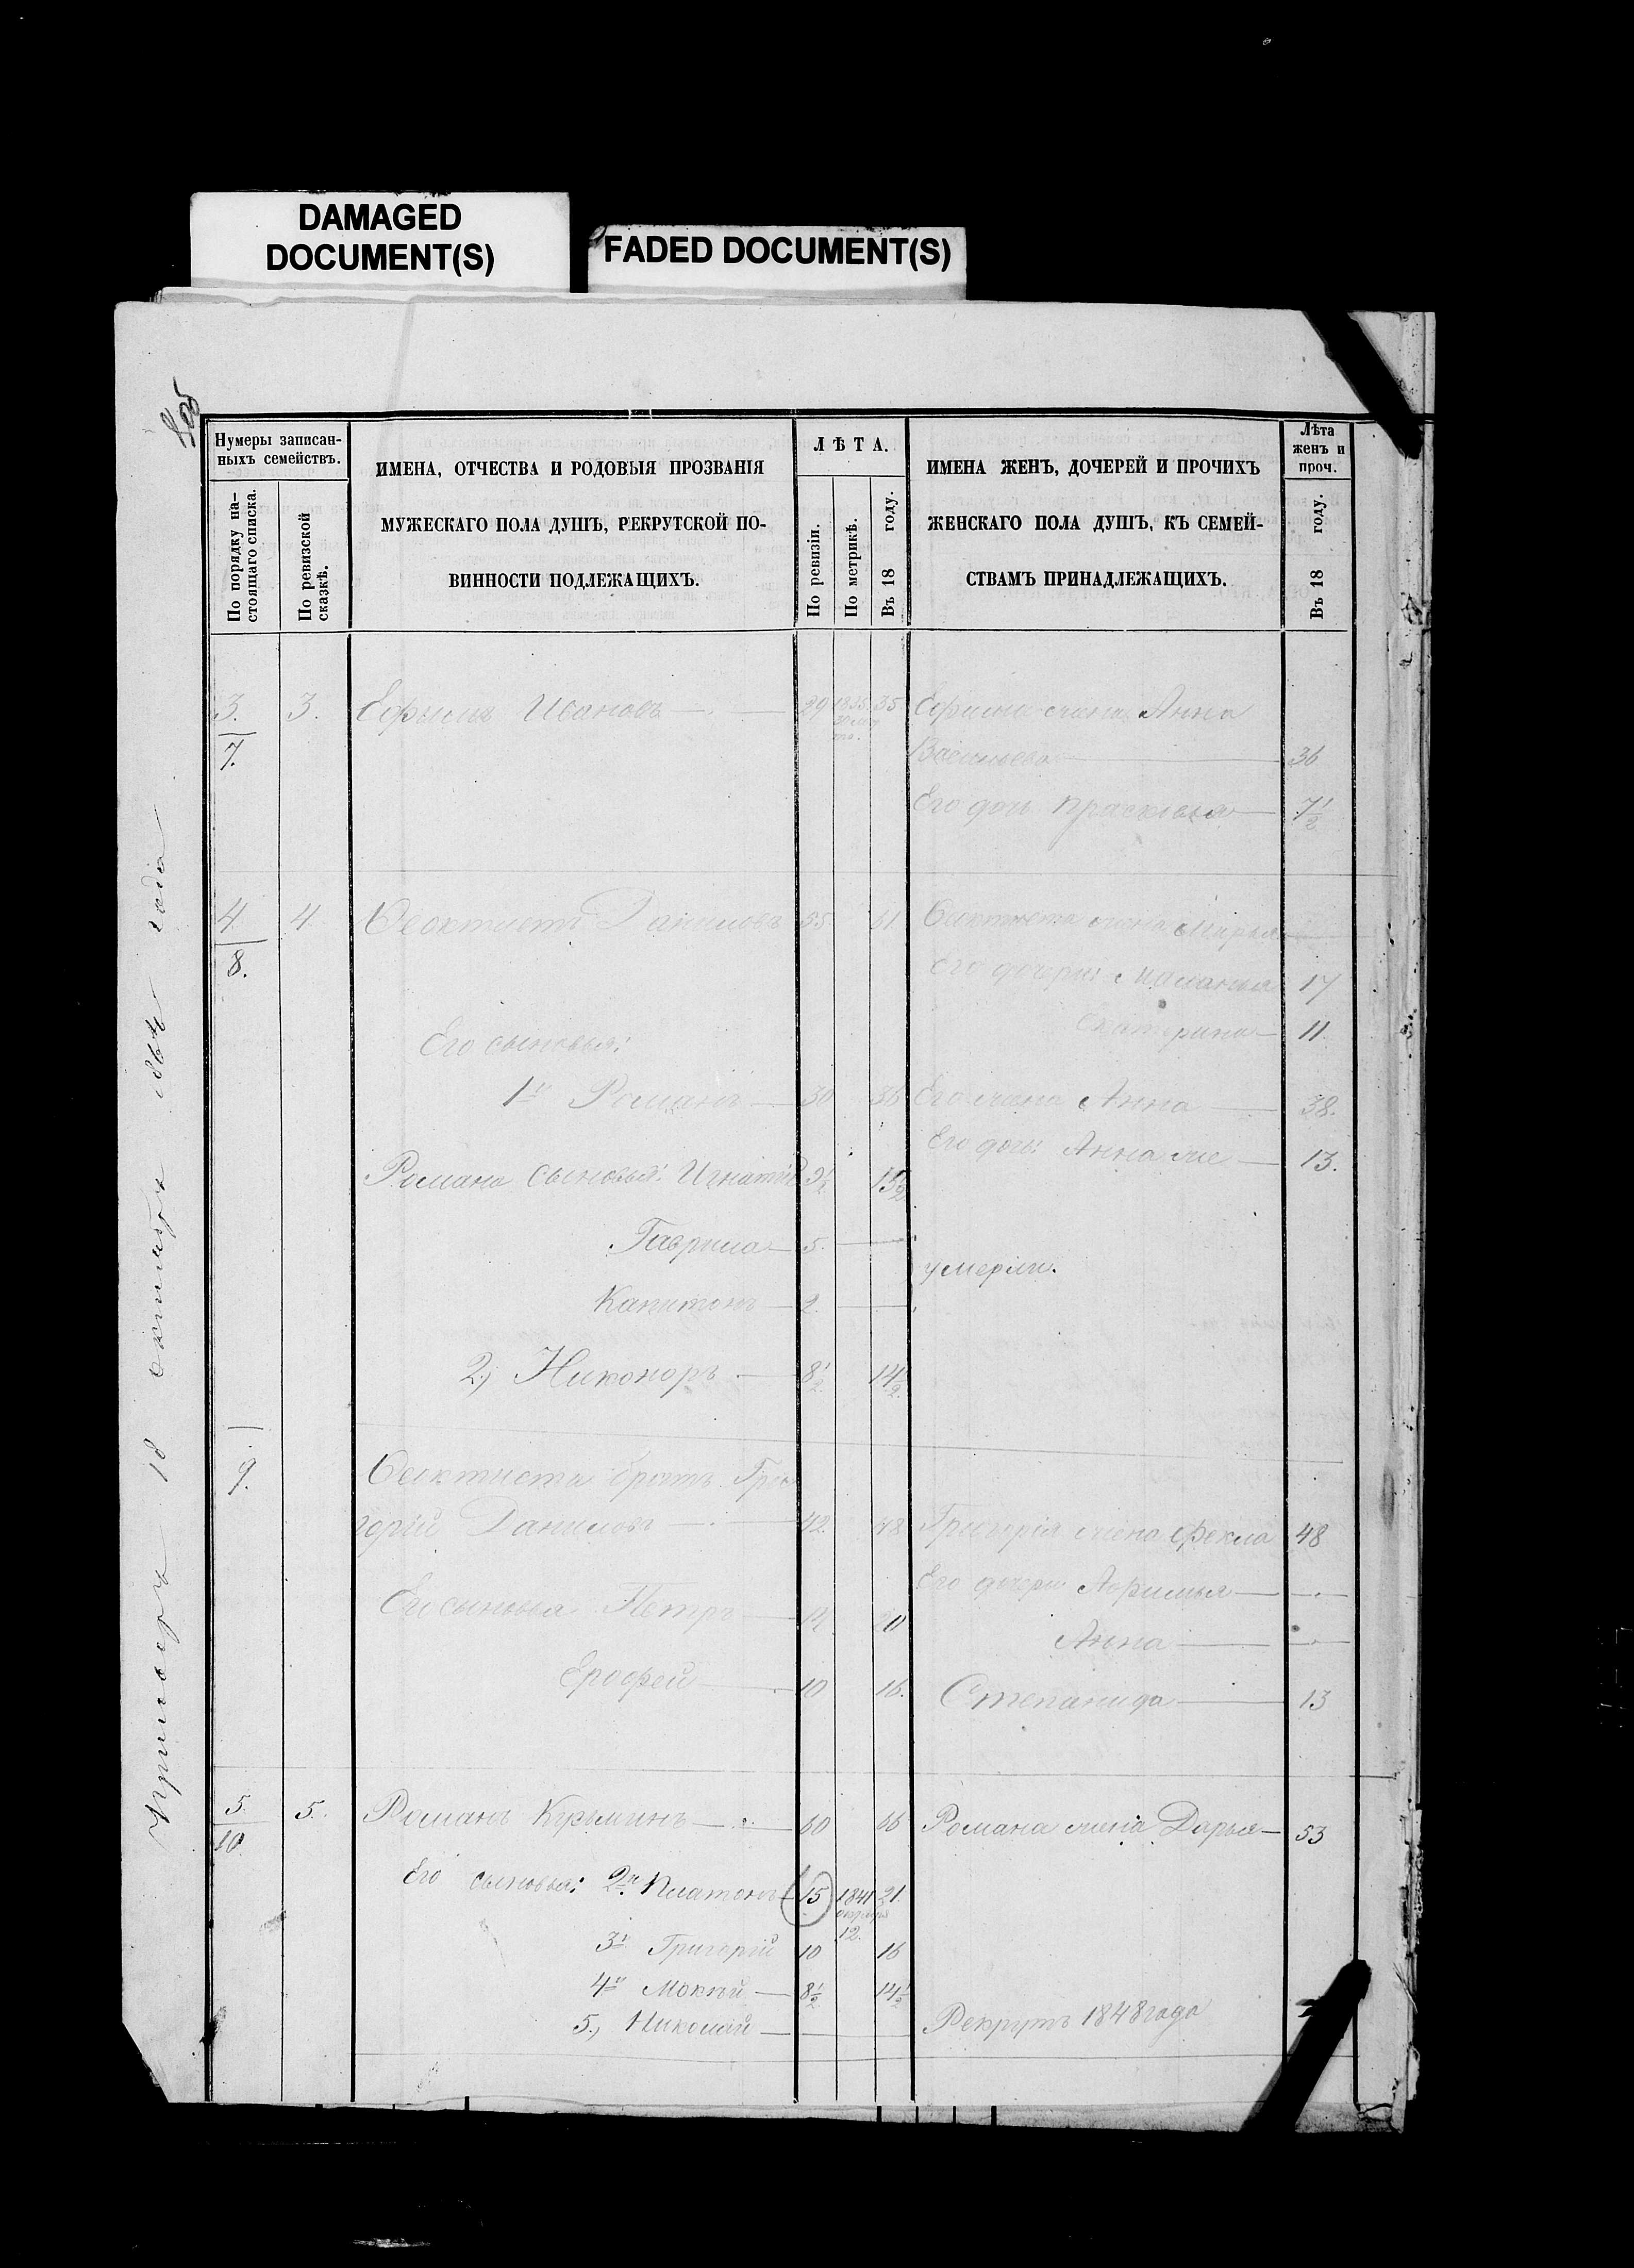 DAMAGED
DOCUMENT(S)
FADED DOCUMENT(S)
Нумеры записан-
ныхъ семействъ.
По порядку на-
стоящаго списка.
По ревизской
сказкѣ.
ИМЕНА, ОТЧЕСТВА И РОДОВЫЯ ПРОЗВАНІЯ
МУЖЕСКАГО ПОЛА ДУШЪ, РЕКРУТСКОЙ ПО-
ВИННОСТИ ПОДЛЕЖАЩИХЪ.
ЛѢТА.
По ревизіи.
По метрикѣ.
Въ 18 году.
ИМЕНА ЖЕНЪ, ДОЧЕРЕЙ И ПРОЧИХЪ
ЖЕНСКАГО ПОЛА ДУШЪ, КЪ СЕМЕЙ-
СТВАМЪ ПРИНАДЛЕЖАЩИХЪ.
Лѣта
женъ и
проч.
Въ 18 году.
3. 3. Ефимъ Ивановъ 29 1835. 35 Ефима жена Анна
7. 36
Его дочь Прасковья 7½
4. 4. Феоктистъ Даниловъ 55. 61. Феоктиста жена Марья
8. его дочери: Маланья 17
Екатерина 11.
Его сыновья:
1й Романъ 30 36 Его жена Анна 38.
Его дочь: Анна же 13.
Романа сыновья: Игнатій 9½ 15½
Гаврила 5.
умерли.
Капитонъ 2.
2, Никоноръ 8½ 14½
9. Феоктиста братъ Гри-
горій Даниловъ 42. 48 Григорія жена Фекла 48
Его дочери Афимья
Его сыновья Петръ 14 20
Анна
Ерофей 10 16. Степанида 13
5. 5. Романъ Кузьминъ 60 66 Романа жена Дарья 53
10.
Его сыновья: 2й Платонъ 15 1841 21.
12.
3й Григорій 10 16
4й Мокѣй 8½ 14½
5, Николай Рекрутъ 1848 года
18 октября 1864 года